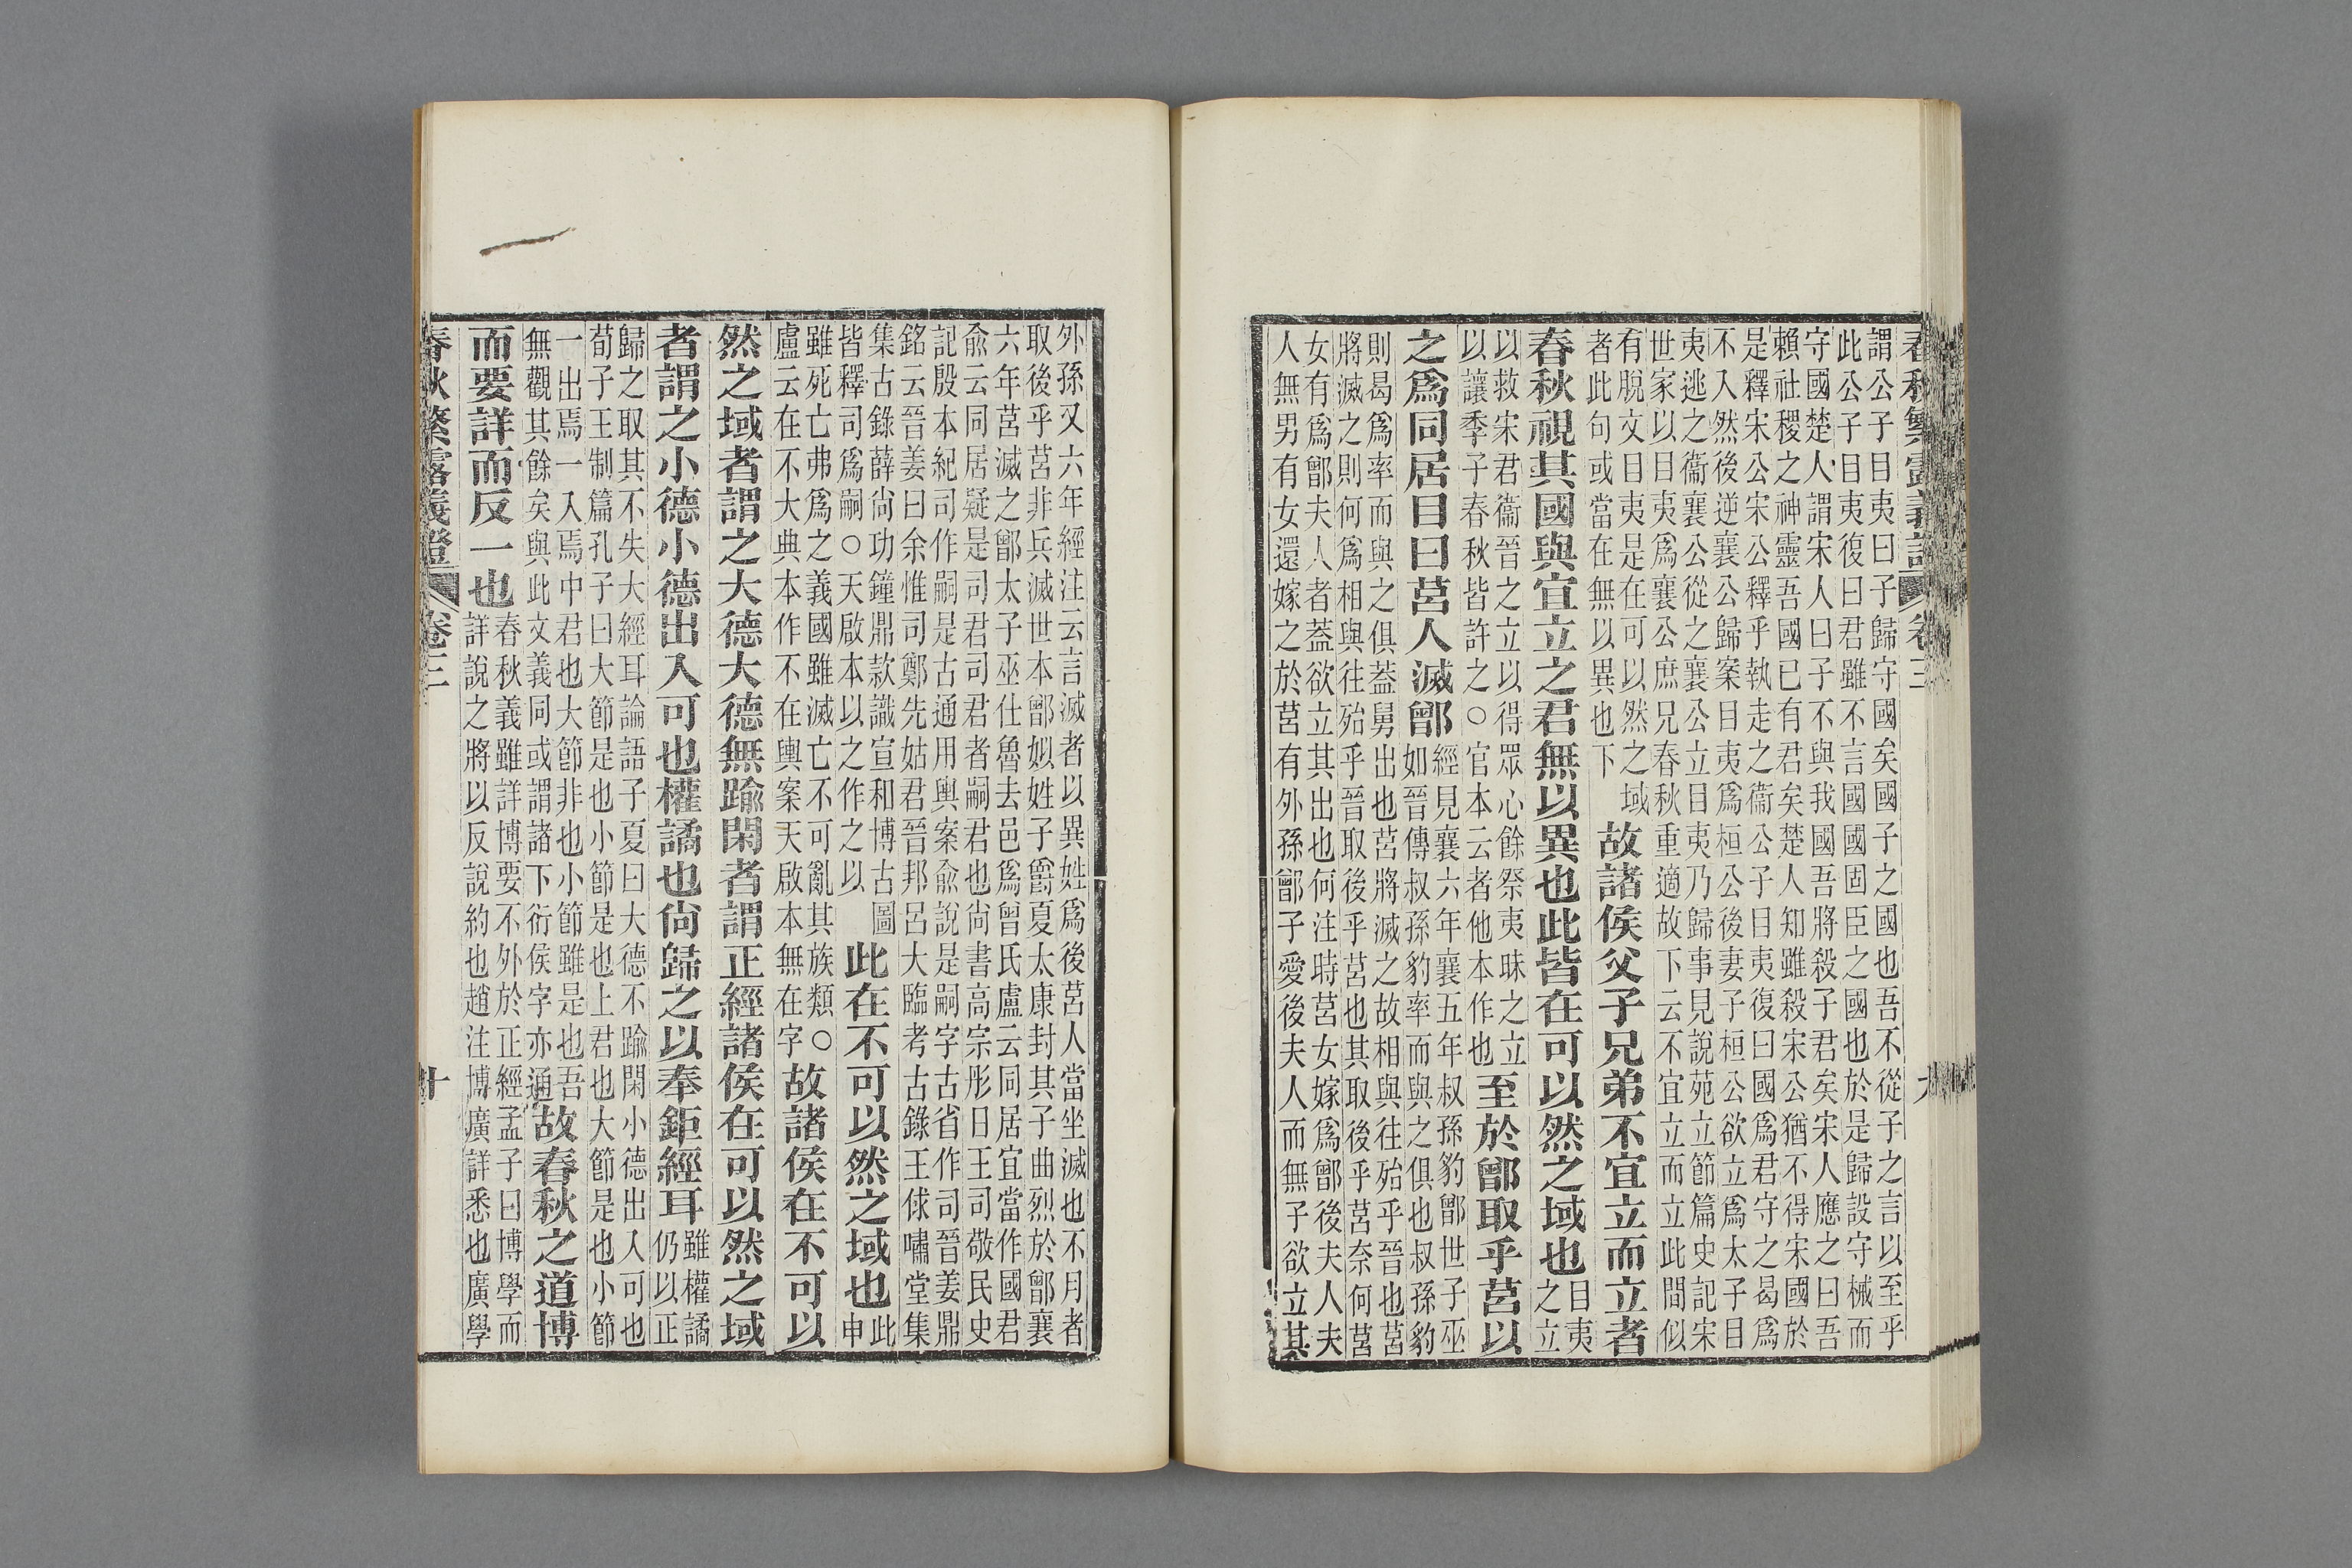 春秋繁露義證 卷三 九
謂公子目夷曰子歸守國矣國子之國也吾不從子之言以至乎
此公子目夷復曰君雖不言國國固臣之國也於是歸設守械而
守國楚人謂宋人曰子不與我國吾將殺子君矣宋人應之曰吾
賴社稷之神靈吾國已有君矣楚人知雖殺宋公猶不得宋國於
是釋宋公宋公釋乎執走之衞公子目夷復曰國爲君守之曷爲
不入然後逆襄公歸案目夷爲桓公後妻子桓公欲立爲太子目
夷逃之衞襄公從之襄公立目夷乃歸事見說苑立節篇史記宋
世家以目夷爲襄公庶兄春秋重適故下云不宜立而立此間似
有脫文目夷是在可以然之域
者此句或當在無以異也下
故諸侯父子兄弟不宜立而立者
春秋視其國與宜立之君無以異也此皆在可以然之域也
目夷
之立
以救宋君衞晉之立以得眾心餘祭夷昧之立
以讓季子春秋皆許之○官本云者他本作也
至於鄫取乎莒以
之爲同居目曰莒人滅鄫
經見襄六年襄五年叔孫豹鄫世子巫
如晉傳叔孫豹率而與之俱也叔孫豹
則曷爲率而與之俱蓋舅出也莒將滅之故相與往殆乎晉也莒
將滅之則何爲相與往殆乎晉取後乎莒也其取後乎莒奈何莒
女有爲鄫夫人者蓋欲立其出也何注時莒女嫁爲鄫後夫人夫
人無男有女還嫁之於莒有外孫鄫子愛後夫人而無子欲立其
外孫又六年經注云言滅者以異姓爲後莒人當坐滅也不月者
取後乎莒非兵滅世本鄫姒姓子爵夏太康封其子曲烈於鄫襄
六年莒滅之鄫太子巫仕魯去邑爲曾氏盧云同居宜當作國君
兪云同居疑是司君司君者嗣君也尙書高宗肜日王司敬民史
記殷本紀司作嗣是古通用輿案兪說是嗣字古省作司晉姜鼎
銘云晉姜曰余惟司鄭先姑君晉邦呂大臨考古錄王俅嘯堂集
集古錄薛尙功鐘鼎款識宣和博古圖
皆釋司爲嗣○天啟本以之作之以
此在不可以然之域也
此
申
雖死亡弗爲之義國雖滅亡不可亂其族類○
盧云在不大典本作不在輿案天啟本無在字
故諸侯在不可以
然之域者謂之大德大德無踰閑者謂正經諸侯在可以然之域
者謂之小德小德出入可也權譎也尙歸之以奉鉅經耳
雖權譎
仍以正
歸之取其不失大經耳論語子夏曰大德不踰閑小德出入可也
荀子王制篇孔子曰大節是也小節是也上君也大節是也小節
一出焉一入焉中君也大節非也小節雖是也吾
無觀其餘矣與此文義同或謂諸下衍侯字亦通
故春秋之道博
而要詳而反一也
春秋義雖詳博要不外於正經孟子曰博學而
詳說之將以反說約也趙注博廣詳悉也廣學
春秋繁露義證 卷三 十